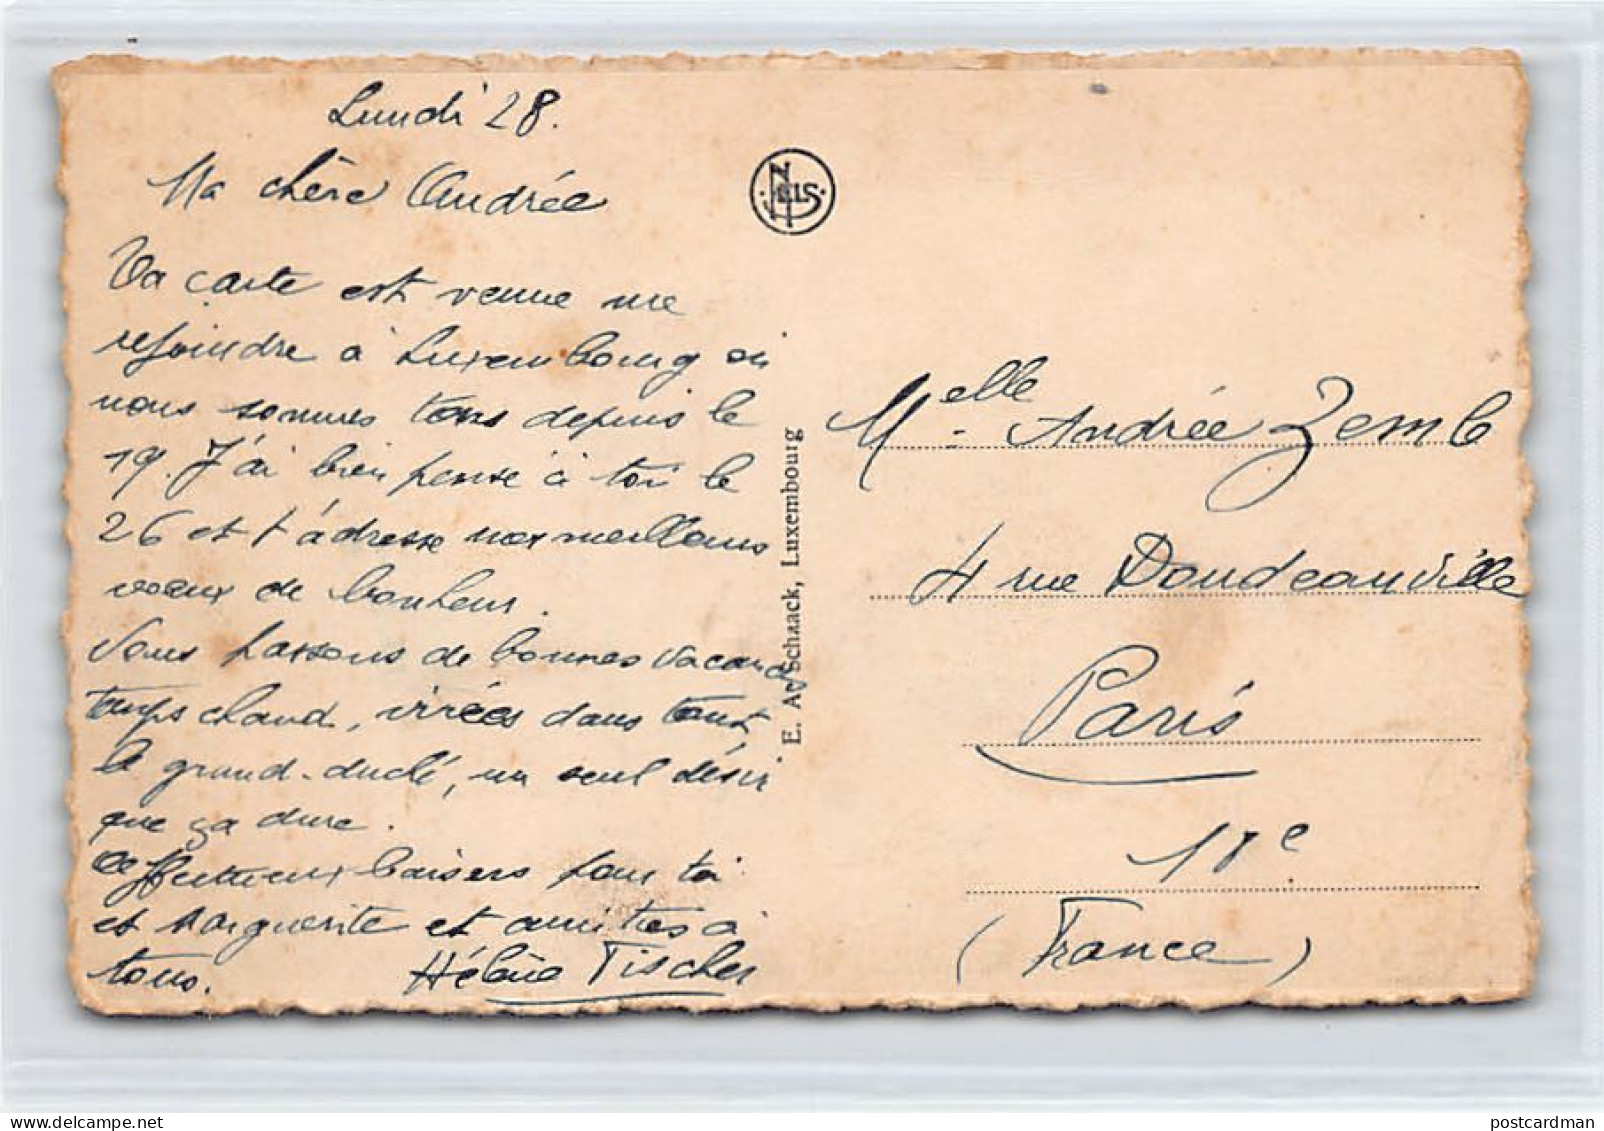 Lundi 28.
Ma chère Andrée
Ta carte est venue me
rejoindre à Luxembourg où
nous sommes tous depuis le
19. J'ai bien pensé à toi le
26 et t'adresse nos meilleurs
voeux de bonheur.
Nous passons de bonnes vacances
temps chaud, virées dans tout
le grand-duché, un seul désir
que ça dure.
Affectueux baisers pour toi
et Marguerite et amitiés à
tous. Hélène Fischer
NELS
E. A. Schaack, Luxembourg
Melle Andrée Zemb
4 rue Doudeauville
Paris
18e
(France)
postcardman